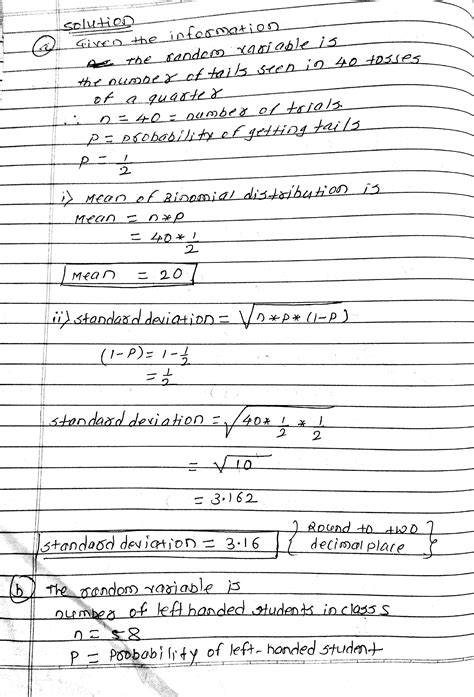 solution
(a) Given the information
the random variable is
the number of tails seen in 40 tosses
of a quarter
∴ n = 40 = number of trials
P = probability of getting tails
P = 1/2
i) Mean of Binomial distribution is
Mean = n*p
= 40 * 1/2
Mean = 20
ii) standard deviation = √n*p*(1-P)
(1-P) = 1 - 1/2
= 1/2
standard deviation = √40 * 1/2 * 1/2
= √10
= 3.162
standard deviation = 3.16 { Round to two decimal place }
(b) The random variable is
number of left handed students in class s
n = 58
P = Probability of left-handed student